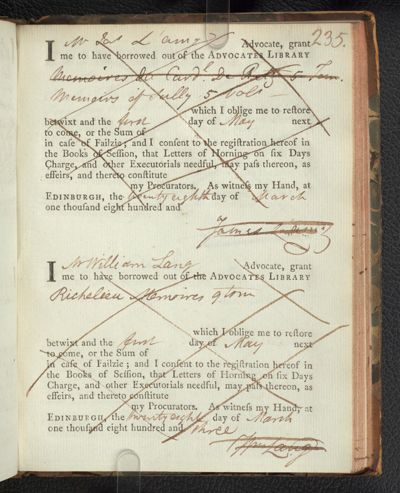 235.
I Mr Jas L Advocate, grant
me to have borrowed out of the ADVOCATES LIBRARY
Memoires du Cardl de Retz 5 Tom.
Memoirs of Sully 5 Vols
which I oblige me to reſtore
betwixt and the first day of May next
to come, or the Sum of
in caſe of Failzie; and I conſent to the regiſtration hereof in
the Books of Seſſion, that Letters of Horning on ſix Days
Charge, and other Executorials needful, may paſs thereon, as
effeirs, and thereto conſtitute
my Procurators. As witneſs my Hand, at
EDINBURGH, the twenty eighth day of March
one thouſand eight hundred and
James
I Mr William Lang Advocate, grant
me to have borrowed out of the ADVOCATES LIBRARY
Richelieu Memoires 9 tom
which I oblige me to reſtore
betwixt and the first day of May next
to come, or the Sum of
in caſe of Failzie; and I conſent to the regiſtration hereof in
the Books of Seſſion, that Letters of Horning on ſix Days
Charge, and other Executorials needful, may paſs thereon, as
effeirs, and thereto conſtitute
my Procurators. As witneſs my Hand, at
EDINBURGH, the twenty eight day of March
one thouſand eight hundred and three
Wm Lang